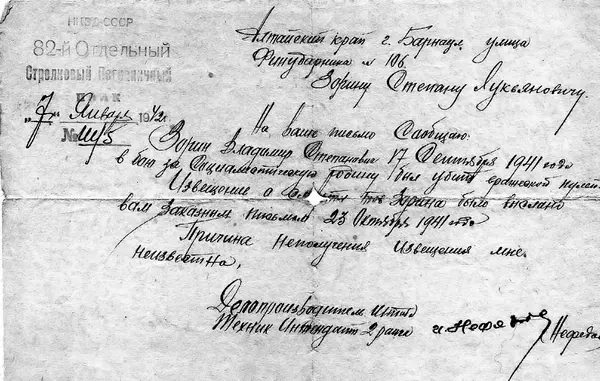 НКВД-СССР
82-й Отдельный
Стрелковый Пограничный
полк
"7" Января 1942г.
№
Алтайский край г. Барнаул улица
№ 106.
Зорину Степану Лукьяновичу.
На ваше письмо Сообщаю:
Зорин Владимир Степанович 17 Сентября 1941 года
в бою за Социалистическую родину был убит вражеской пулей.
Извещение о тов Зорина было выслано
вам Заказным письмом 23 Октября 1941 года
Причина неполучения извещения мне
неизвестна.
Делопроизводитель штаба
Техник Интендант 2 ранга